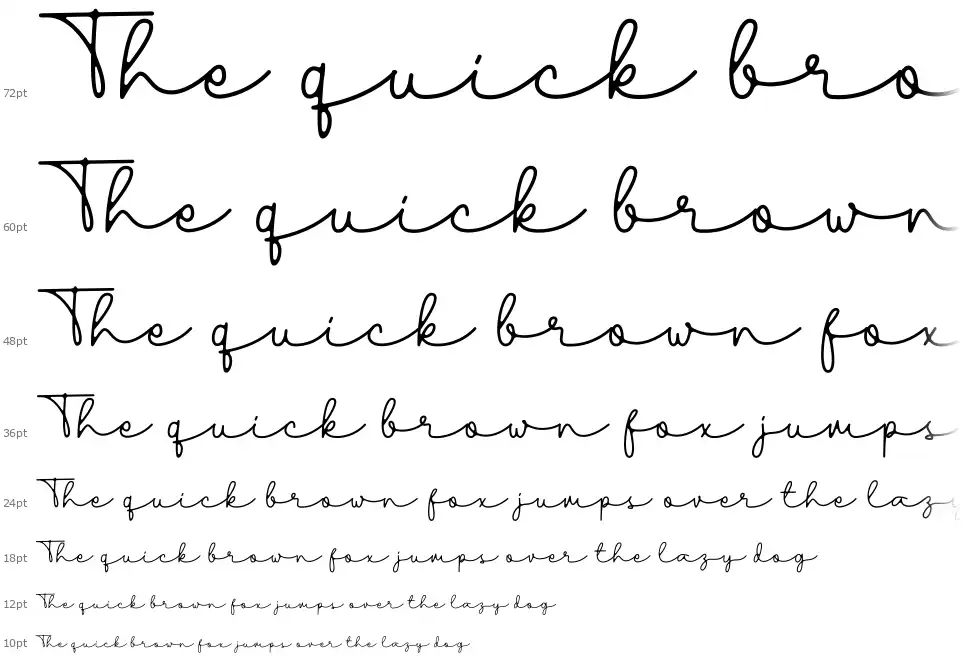 72pt The quick bro
60pt The quick brown
48pt The quick brown fox
36pt The quick brown fox jumps
24pt The quick brown fox jumps over the lazy
18pt The quick brown fox jumps over the lazy dog
12pt The quick brown fox jumps over the lazy dog
10pt The quick brown fox jumps over the lazy dog